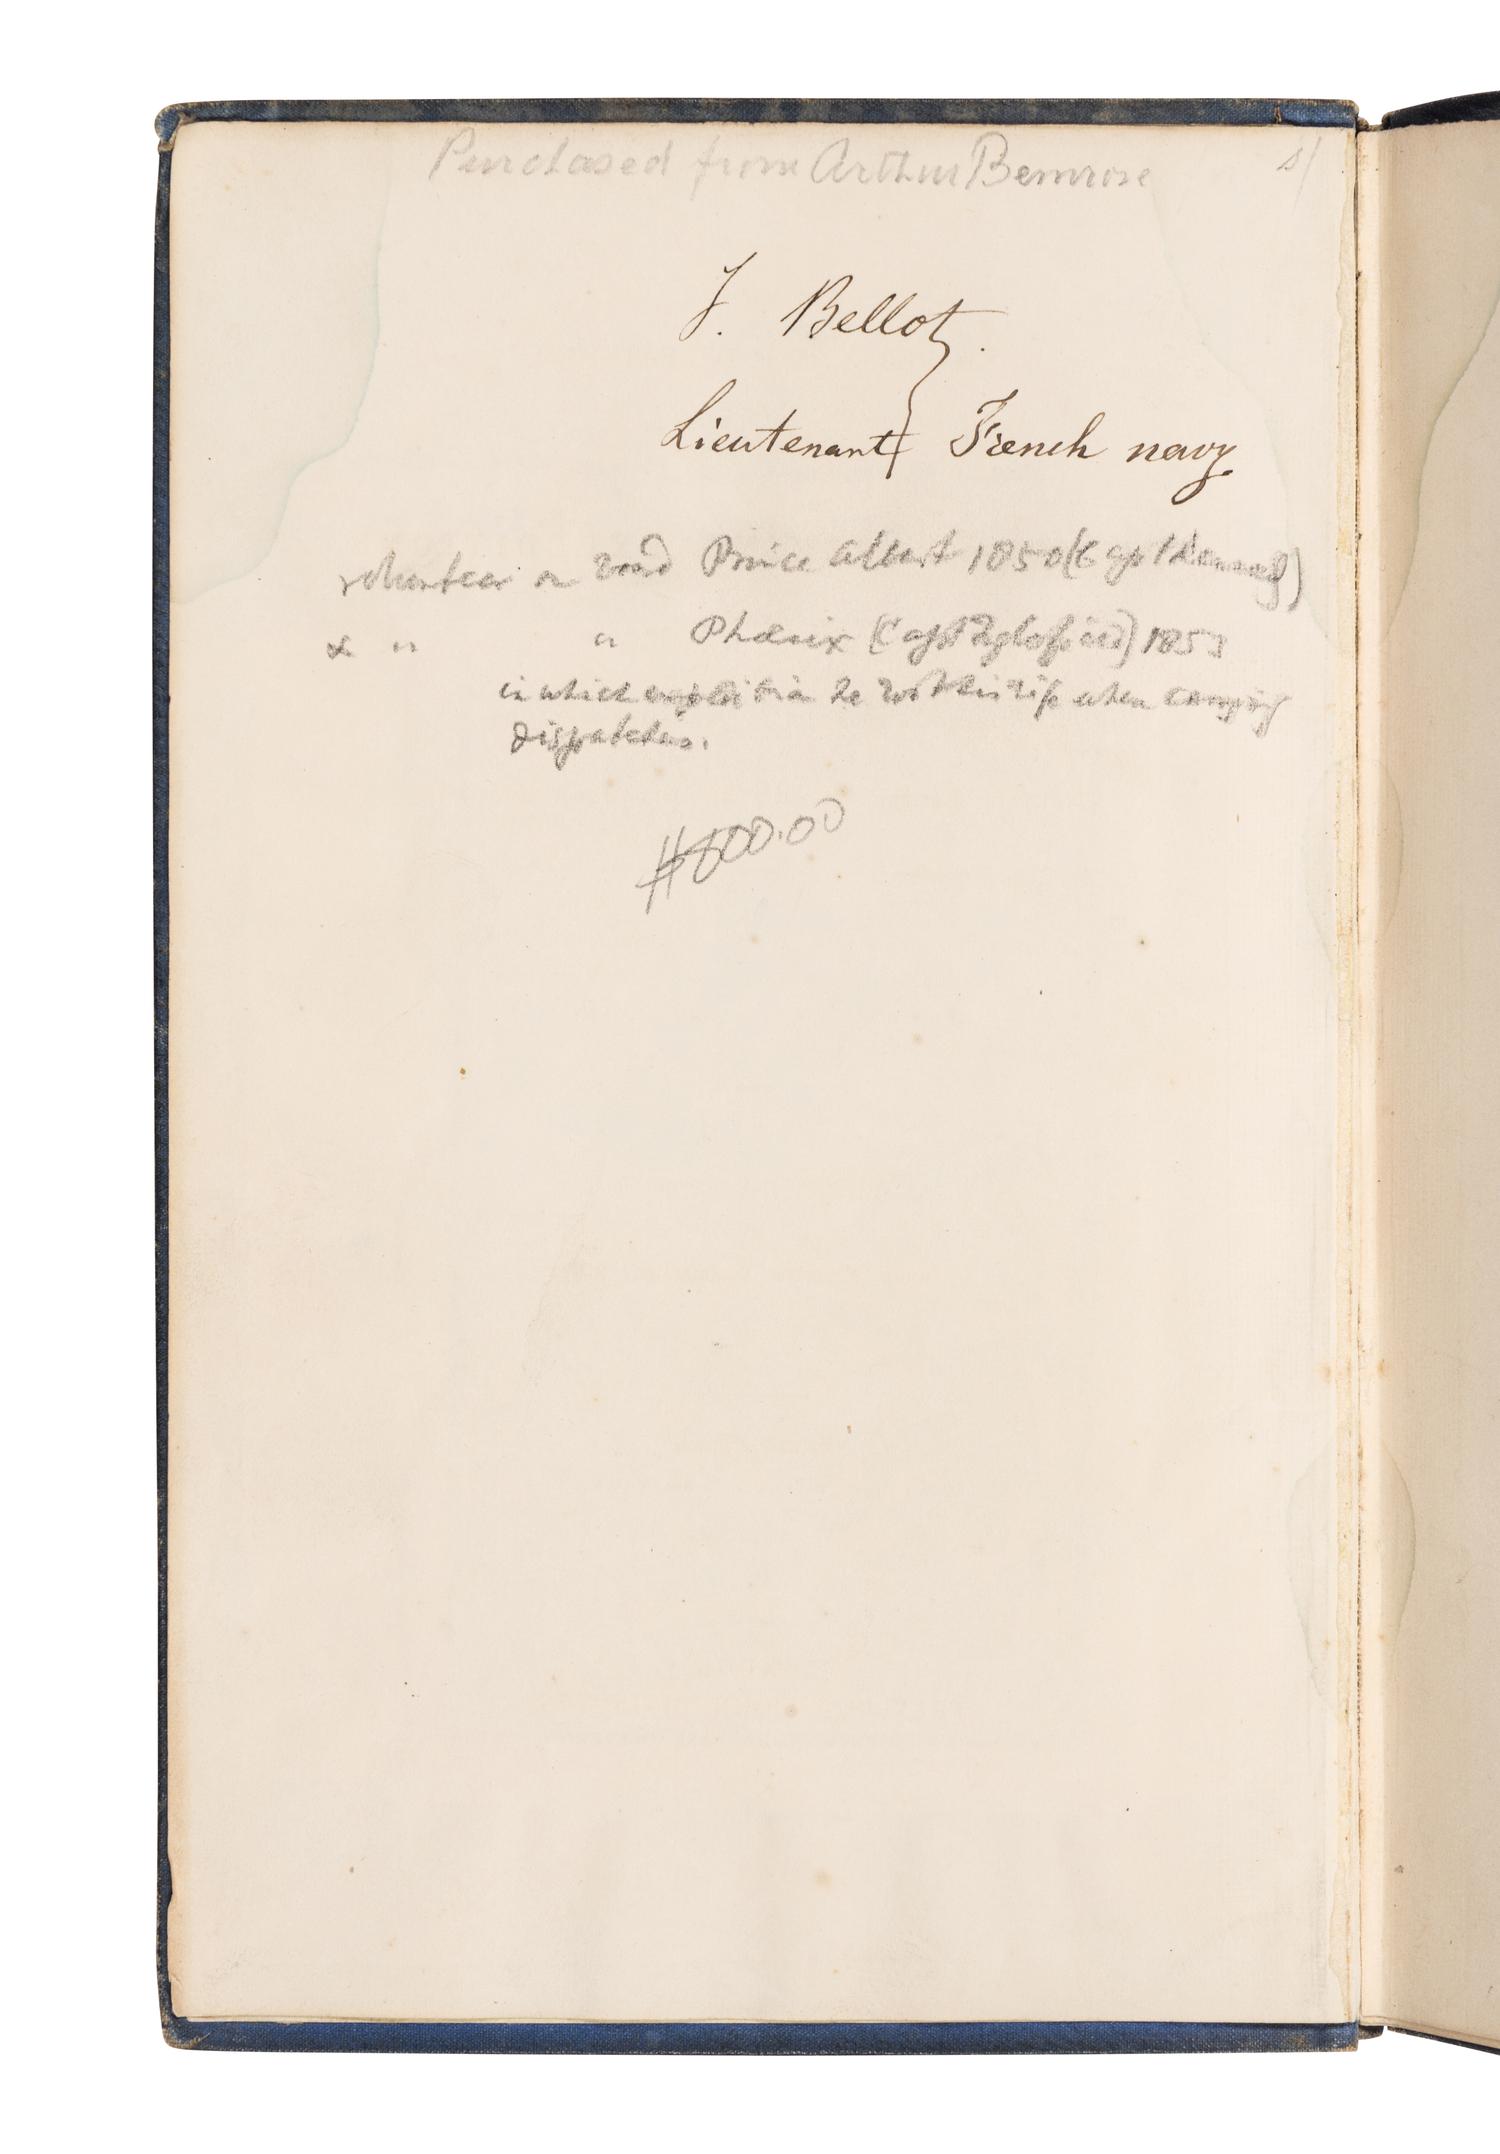 Purchased from Arthur Bemrose s/
J. Bellot.
Lieutenant French navy
volunteer on board Prince Albert 1850 (Capt Kennedy)
& " " Phœnix (Capt Inglefield) 1853
in which expedition he lost his life when carrying
dispatches.
$800.00